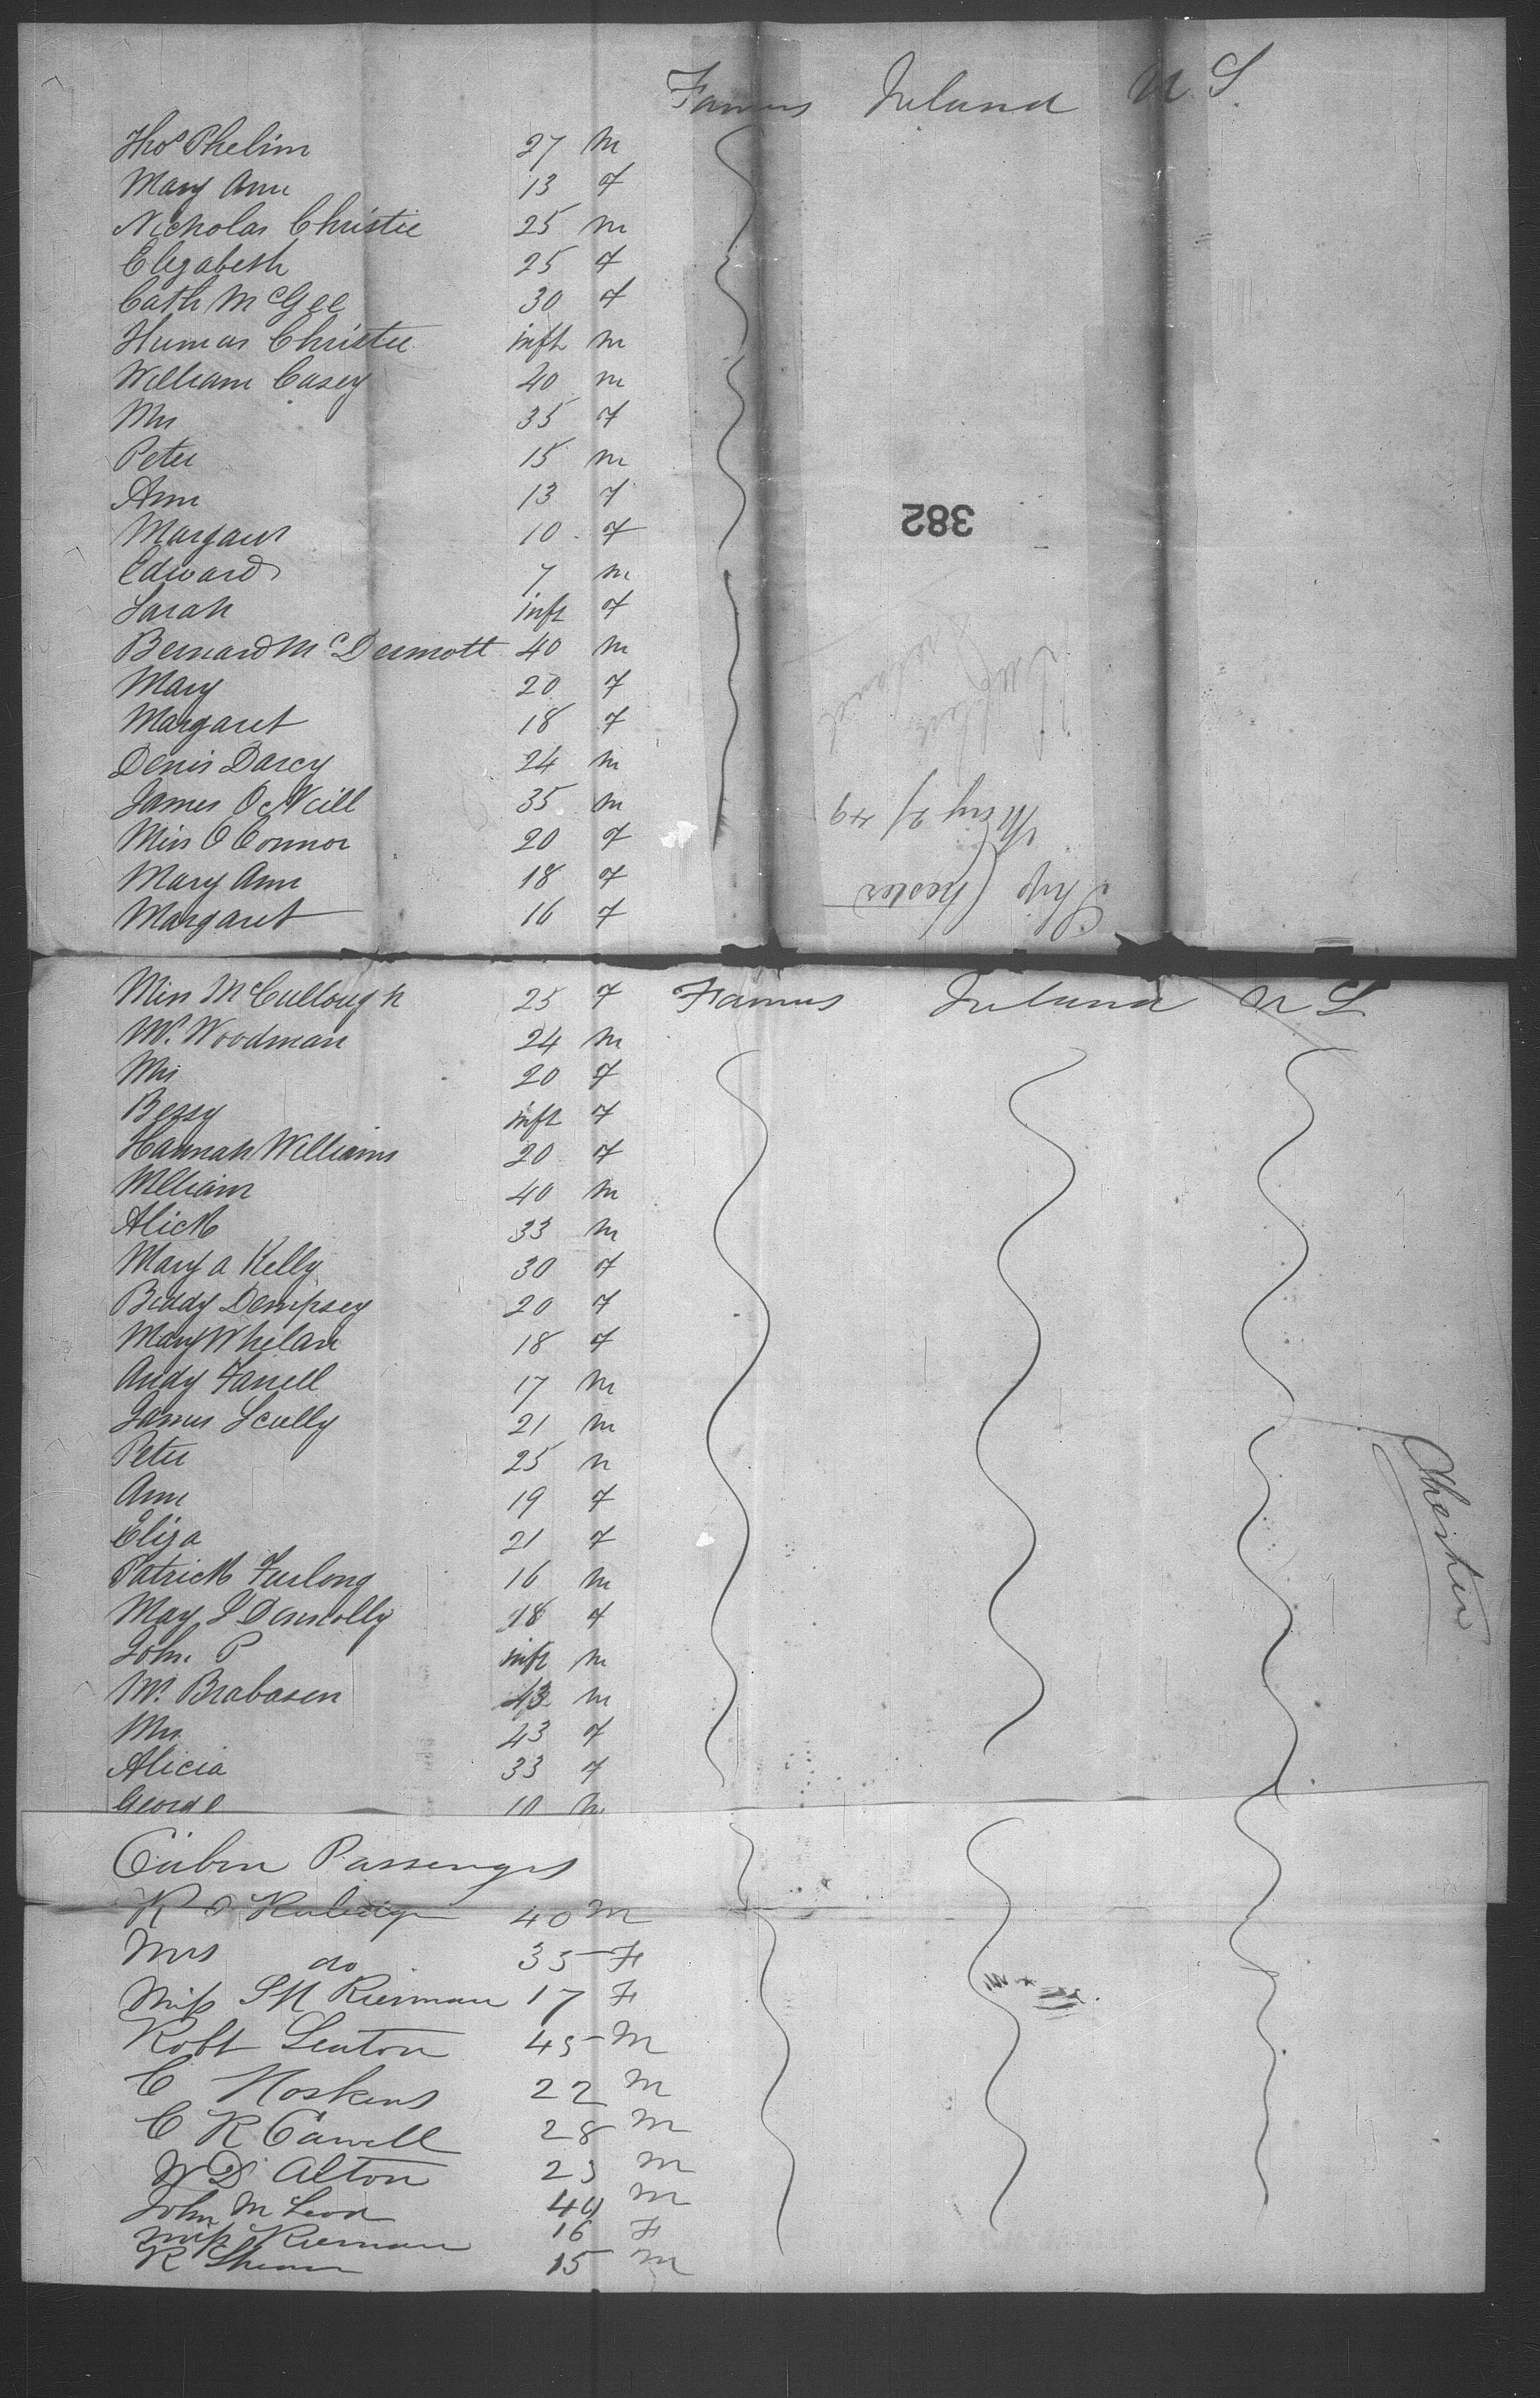 Farmers Ireland U.S.
Thos Phelim 27 m
Mary Ann 13 f
Nicholas Christie 25 m
Elizabeth 25 f
Cath McGee 30 f
Christie inft m
William Casey 40 m
Mrs 35 f
Peter 15 m
Ann 13 f
Margaret 10 f
Edward 7 m
Sarah inft f
Bernard McDermott 40 m
Mary 20 f
Margaret 18 f
Denis Darcy 24 m
James O'Neill 35 m
Miss O Connor 20 f
Mary Ann 18 f
Margaret 16 f
382
Ship Chester
May 21 49
Miss McCullough 25 f Farmers Ireland U S
Mr. Woodman 24 m
Mrs 20 f
Bessy inft f
Hannah Williams 20 f
William 40 m
Alick 33 m
Mary A Kelly 30 f
Biddy Dempsey 20 f
Mary Whelan 18 f
Andy Farrell 17 m
James Scully 21 m
Peter 25 m
Ann 19 f
Eliza 21 f
Patrick Furlong 16 m
Mary J Donnolly 18 f
John P inft m
Mr. Brabasen 43 m
Mrs 43 f
Alicia 33 f
George 10 m
Cabin Passengers
40 M
Mrs do 35 F
Miss Kiernan 17 F
Robt Seaton 45 M
C Hoskins 22 M
C R Carrell 28 M
W D Alton 23 M
John M Leod 40 M
Miss Kiernan 16 F
R 15 M